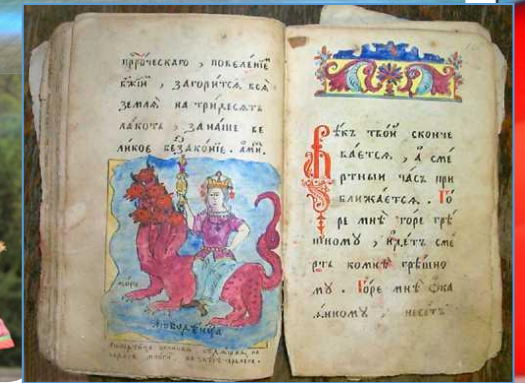 прⷪ҇рческаго , повелѣнїе
бж҃їй , загоритсѧ всѧ
землѧ на тридесѧть
лакоть , занаше ве
ликое беззаконїе . ами́н .
море
любодѣица
Вѣкъ тво́й сконче
ва́етсѧ , а҆ сме́
ртный ча́съ при
ближа́етсѧ . Го́
ре мнѣ̀ го́ре грѣ́
шному , и҆де́тъ сме́
рть комнѣ̀ грѣ́шно
му . Го́ре мнѣ̀ ѡ҆ка
ѧ́нному , нѣ́сть